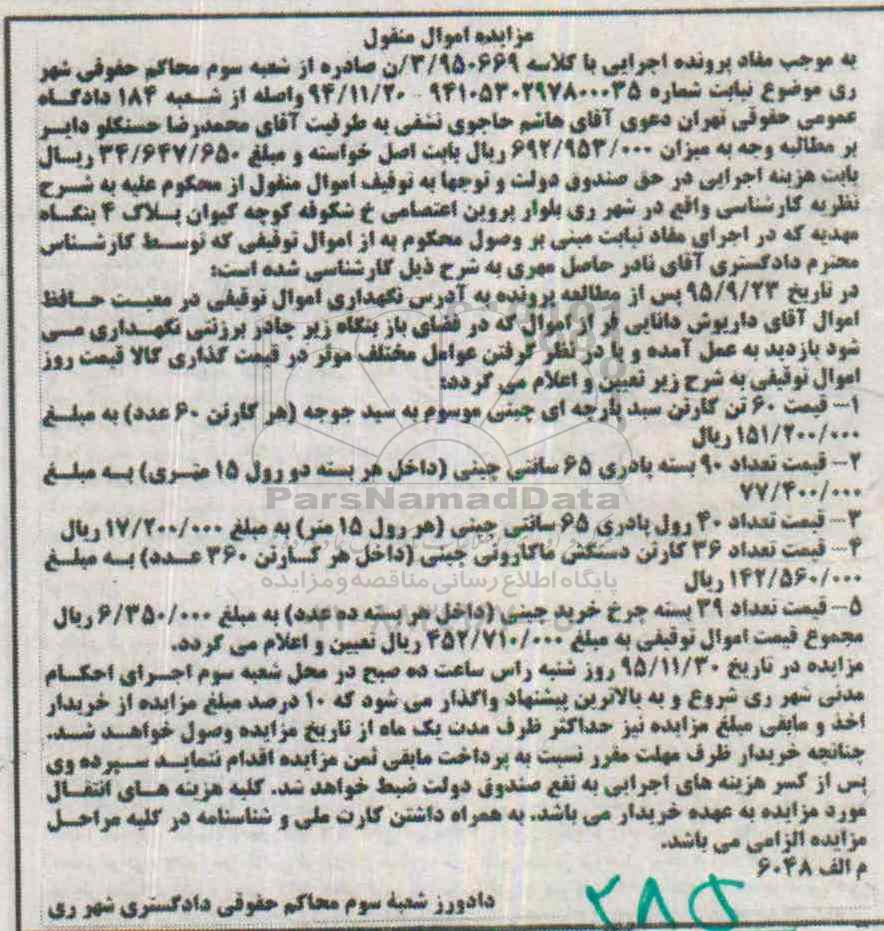 مزایده اموال منقول
به موجب مفاد پرونده اجرایی با کلاسه ۳/۹۵۰۶۶۹/ن صادره از شعبه سوم محاکم حقوقی شهر
ری موضوع نیابت شماره ۹۴۱۰۵۳۰۲۹۷۸۰۰۰۳۵ - ۹۴/۱۱/۲۰ واصله از شعبه ۱۸۴ دادگاه
عمومی حقوقی تهران دعوی آقای هاشم حاجوی نشفی به طرفیت آقای محمدرضا حسنکلو دایر
بر مطالبه وجه به میزان ۶۹۲/۹۵۳/۰۰۰ ریال بابت اصل خواسته و مبلغ ۳۴/۶۴۷/۶۵۰ ریال
بابت هزینه اجرایی در حق صندوق دولت و توجها به توقیف اموال منقول از محکوم علیه به شرح
نظریه کارشناسی واقع در شهر ری بلوار پروین اعتصامی خ شکوفه کوچه کیوان پلاک ۴ بنگاه
مهدیه که در اجرای مفاد نیابت مبنی بر وصول محکوم به از اموال توقیفی که توسط کارشناس
محترم دادگستری آقای نادر حاصل مهری به شرح ذیل کارشناسی شده است:
در تاریخ ۹۵/۹/۲۳ پس از مطالعه پرونده به آدرس نگهداری اموال توقیفی در معیت حافظ
اموال آقای داریوش دانایی فر از اموال که در فضای باز بنگاه زیر چادر برزنتی نگهداری می
شود بازدید به عمل آمده و با در نظر گرفتن عوامل مختلف موثر در قیمت گذاری کالا قیمت روز
اموال توقیفی به شرح زیر تعیین و اعلام می گردد:
۱- قیمت ۶۰ تن کارتن سبد پارچه ای چینی موسوم به سبد جوجه (هر کارتن ۶۰ عدد) به مبلغ
۱۵۱/۲۰۰/۰۰۰ ریال
۲- قیمت تعداد ۹۰ بسته پادری ۶۵ سانتی چینی (داخل هر بسته دو رول ۱۵ متری) به مبلغ
۷۷/۴۰۰/۰۰۰
ParsNamadData
۳- قیمت تعداد ۴۰ رول پادری ۶۵ سانتی چینی (هر رول ۱۵ متر) به مبلغ ۱۷/۲۰۰/۰۰۰ ریال
۴- قیمت تعداد ۳۶ کارتن دستکش ماکارونی چینی (داخل هر کارتن ۳۶۰ عدد) به مبلغ
۱۴۲/۵۶۰/۰۰۰ ریال
پایگاه اطلاع رسانی مناقصه و مزایده
۵- قیمت تعداد ۳۹ بسته چرخ خرید چینی (داخل هر بسته ده عدد) به مبلغ ۶/۳۵۰/۰۰۰ ریال
مجموع قیمت اموال توقیفی به مبلغ ۴۵۲/۷۱۰/۰۰۰ ریال تعیین و اعلام می گردد.
مزایده در تاریخ ۹۵/۱۱/۳۰ روز شنبه راس ساعت ده صبح در محل شعبه سوم اجرای احکام
مدنی شهر ری شروع و به بالاترین پیشنهاد واگذار می شود که ۱۰ درصد مبلغ مزایده از خریدار
اخذ و مابقی مبلغ مزایده نیز حداکثر ظرف مدت یک ماه از تاریخ مزایده وصول خواهد شد.
چنانچه خریدار ظرف مهلت مقرر نسبت به پرداخت مابقی ثمن مزایده اقدام ننماید سپرده وی
پس از کسر هزینه های اجرایی به نفع صندوق دولت ضبط خواهد شد. کلیه هزینه های انتقال
مورد مزایده به عهده خریدار می باشد. به همراه داشتن کارت ملی و شناسنامه در کلیه مراحل
مزایده الزامی می باشد.
م الف ۶۰۴۸
دادورز شعبه سوم محاکم حقوقی دادگستری شهر ری
۲۸۵